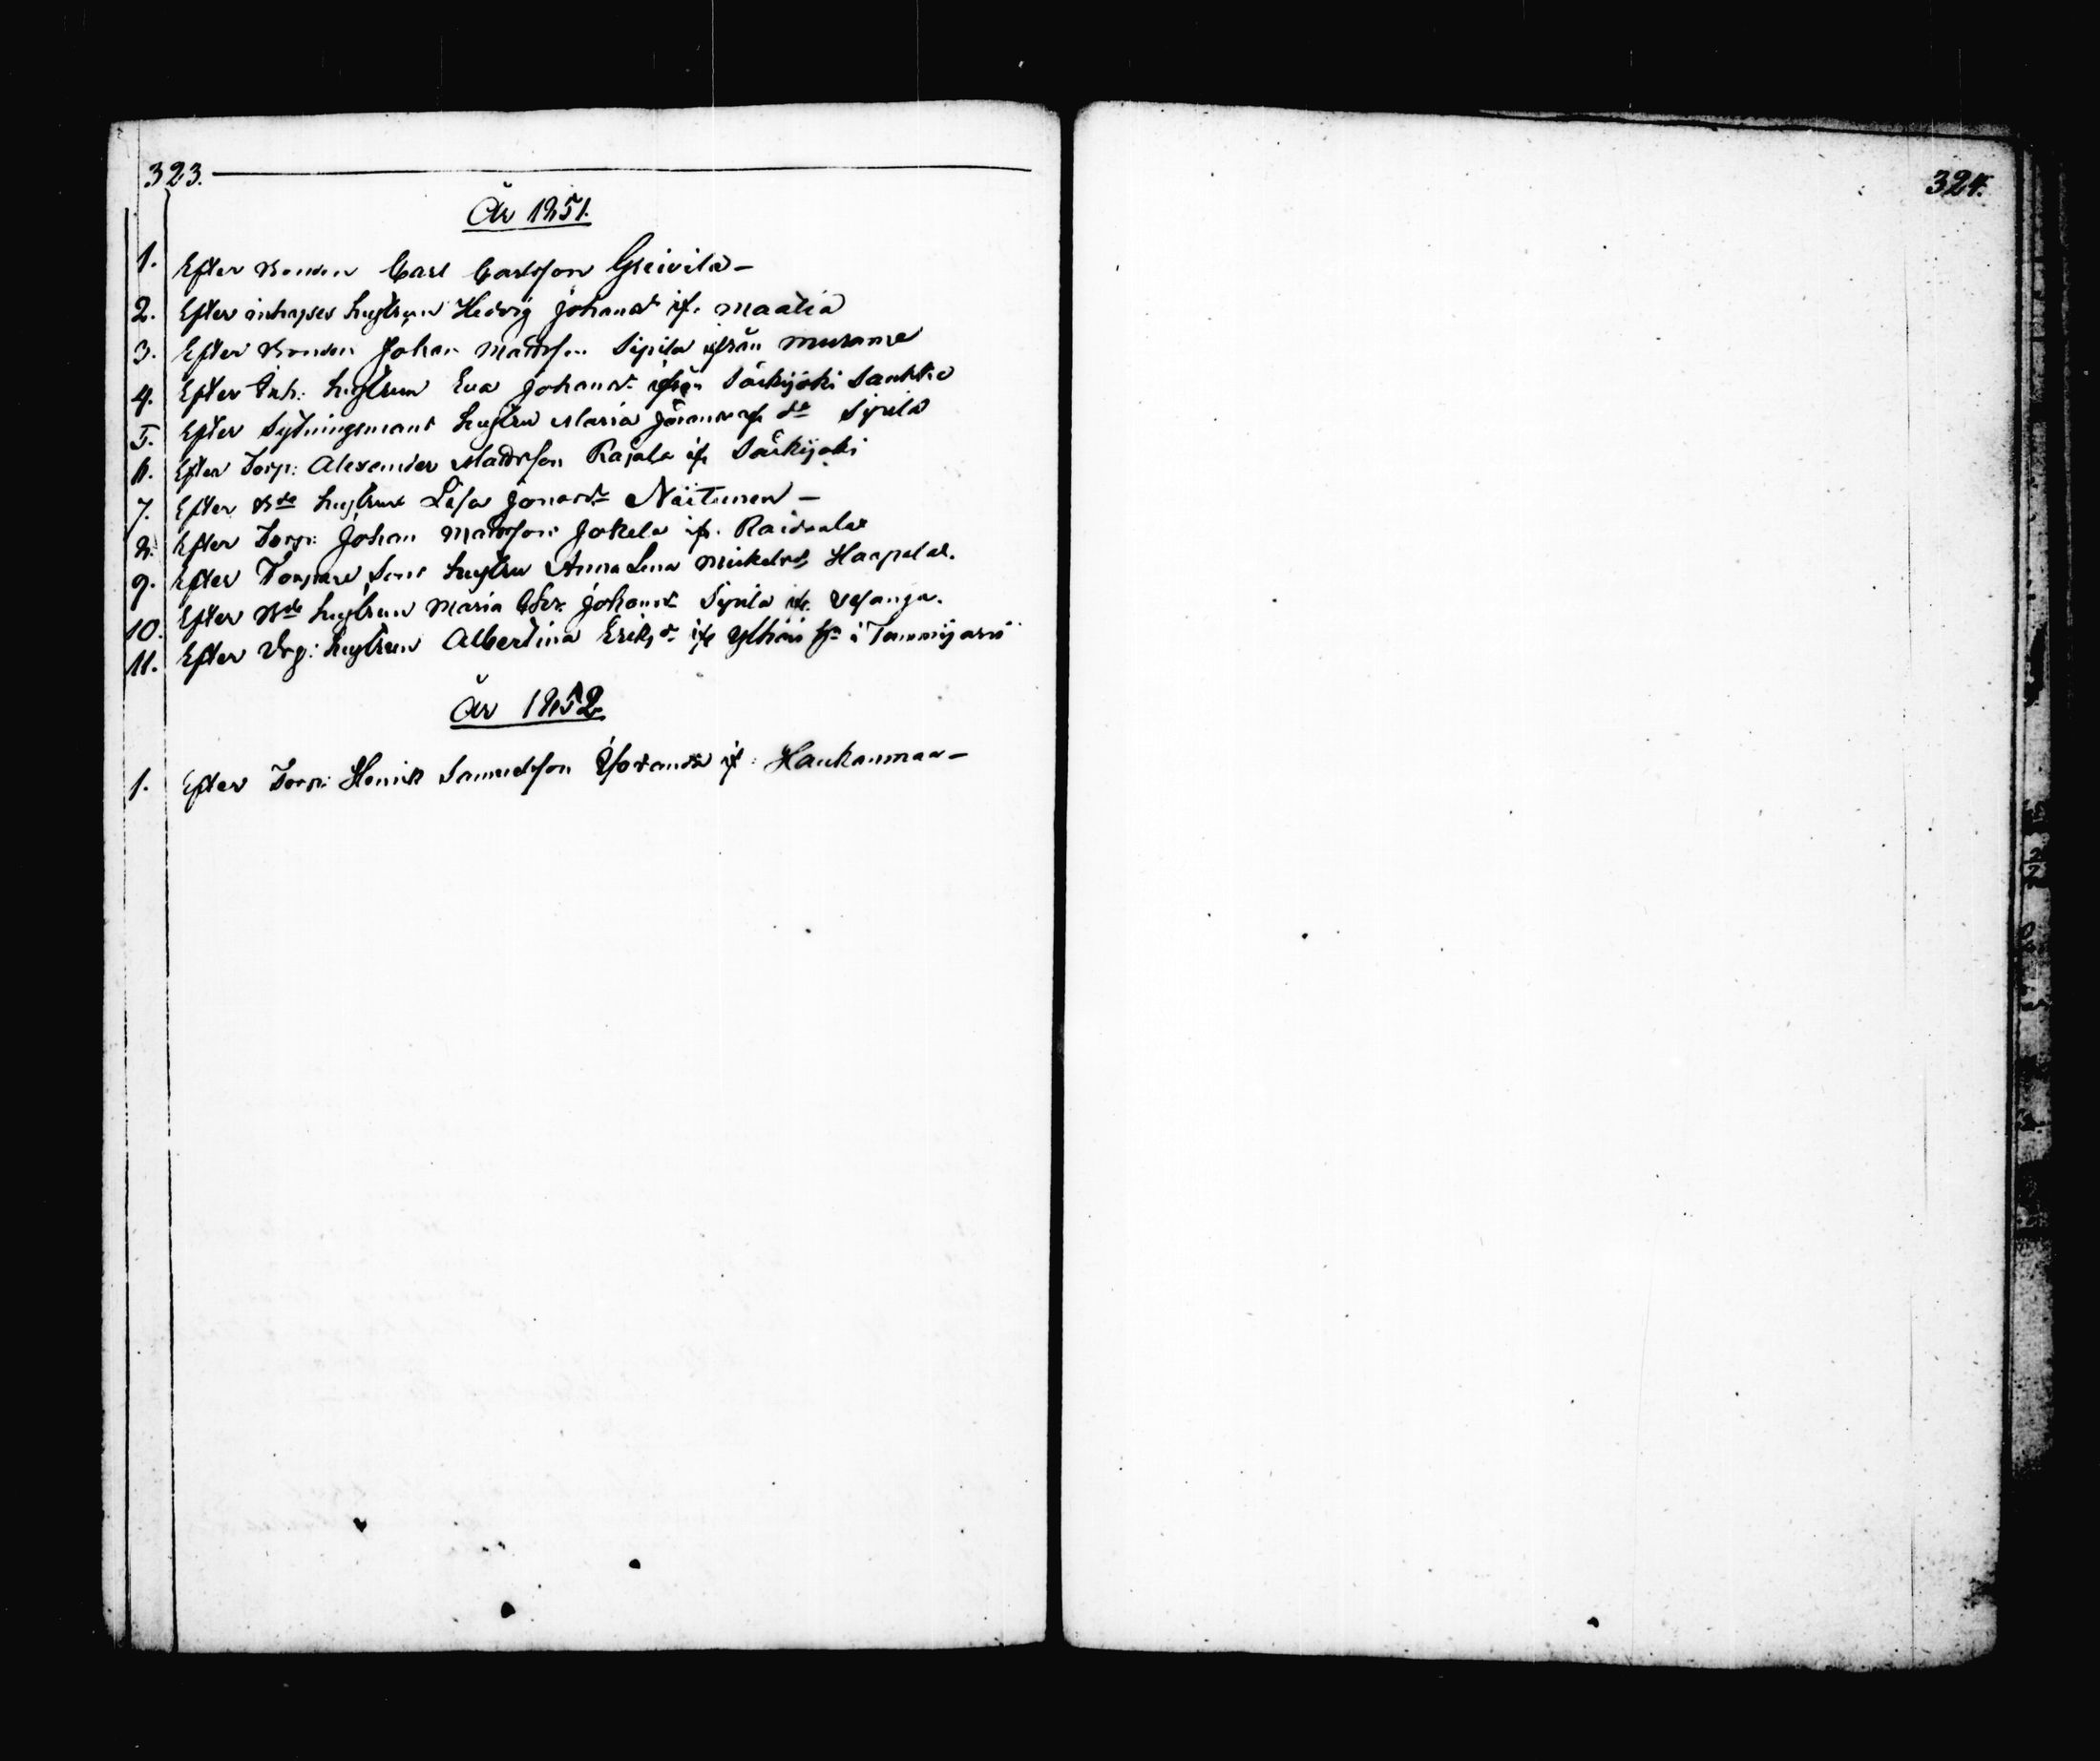 323.
År 1851.
1. Efter Bonden Carl Carlsson Greivilä –
2. Efter inhyses hustrun Hedvig Johansdr ifr. Maatia
3. Efter Bonden Johan Mattsson Sipilä ifrån Murame
4. Efter Inh: hustrun Eva Johansdr ifrån Säckijoki
5. Efter Sytningsmans hustru Maria ifr do Sipilä
6. Efter Torp: Alexander Mattsson Rajala ifr Säckijoki
7. Efter Bde hustrun Lisa Jonasdr Näitunen –
8. Efter Torp: Johan Mattsson Jokela ifr. Raidala
9. Efter Torpare Sons hustru Anna Lena Mickelsdr Haapala.
10. Efter Bde hustrun Maria Chr. Johansdr Sipilä ifr. Vesanga.
11. Efter Drg: hustrun Albertina Eriksdr ifr i Tammijärvi
År 1852.
1. Efter Torp: Henrik Samuelsson ifr: Haukanmaa –
324.